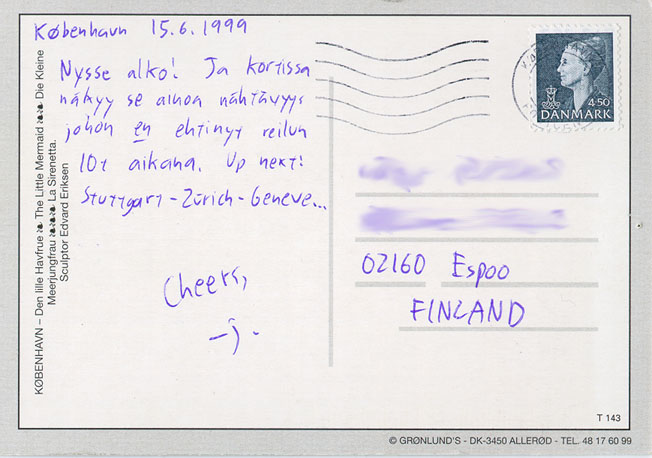 København 15.6.1999
Nysse alko! Ja kortissa
näkyy se ainoa nähtävyys
johon en ehtinyt reilun
10t aikana. Up next:
Stuttgart-Zürich-Geneve...
Cheers,
-j-
4.50
DANMARK
02160 Espoo
FINLAND
KØBENHAVN – Den lille Havfrue The Little Mermaid Die Kleine
Meerjungfrau La Sirenetta.
Sculptor Edvard Eriksen
T 143
© GRØNLUND'S - DK-3450 ALLERØD - TEL. 48 17 60 99